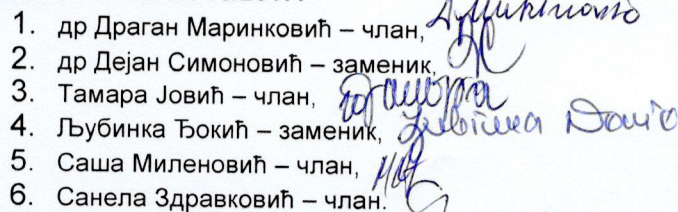 1. др Драган Маринковић – члан,
2. др Дејан Симоновић – заменик,
3. Тамара Јовић – члан,
4. Љубинка Ђокић – заменик,
5. Саша Миленовић – члан,
6. Санела Здравковић – члан.